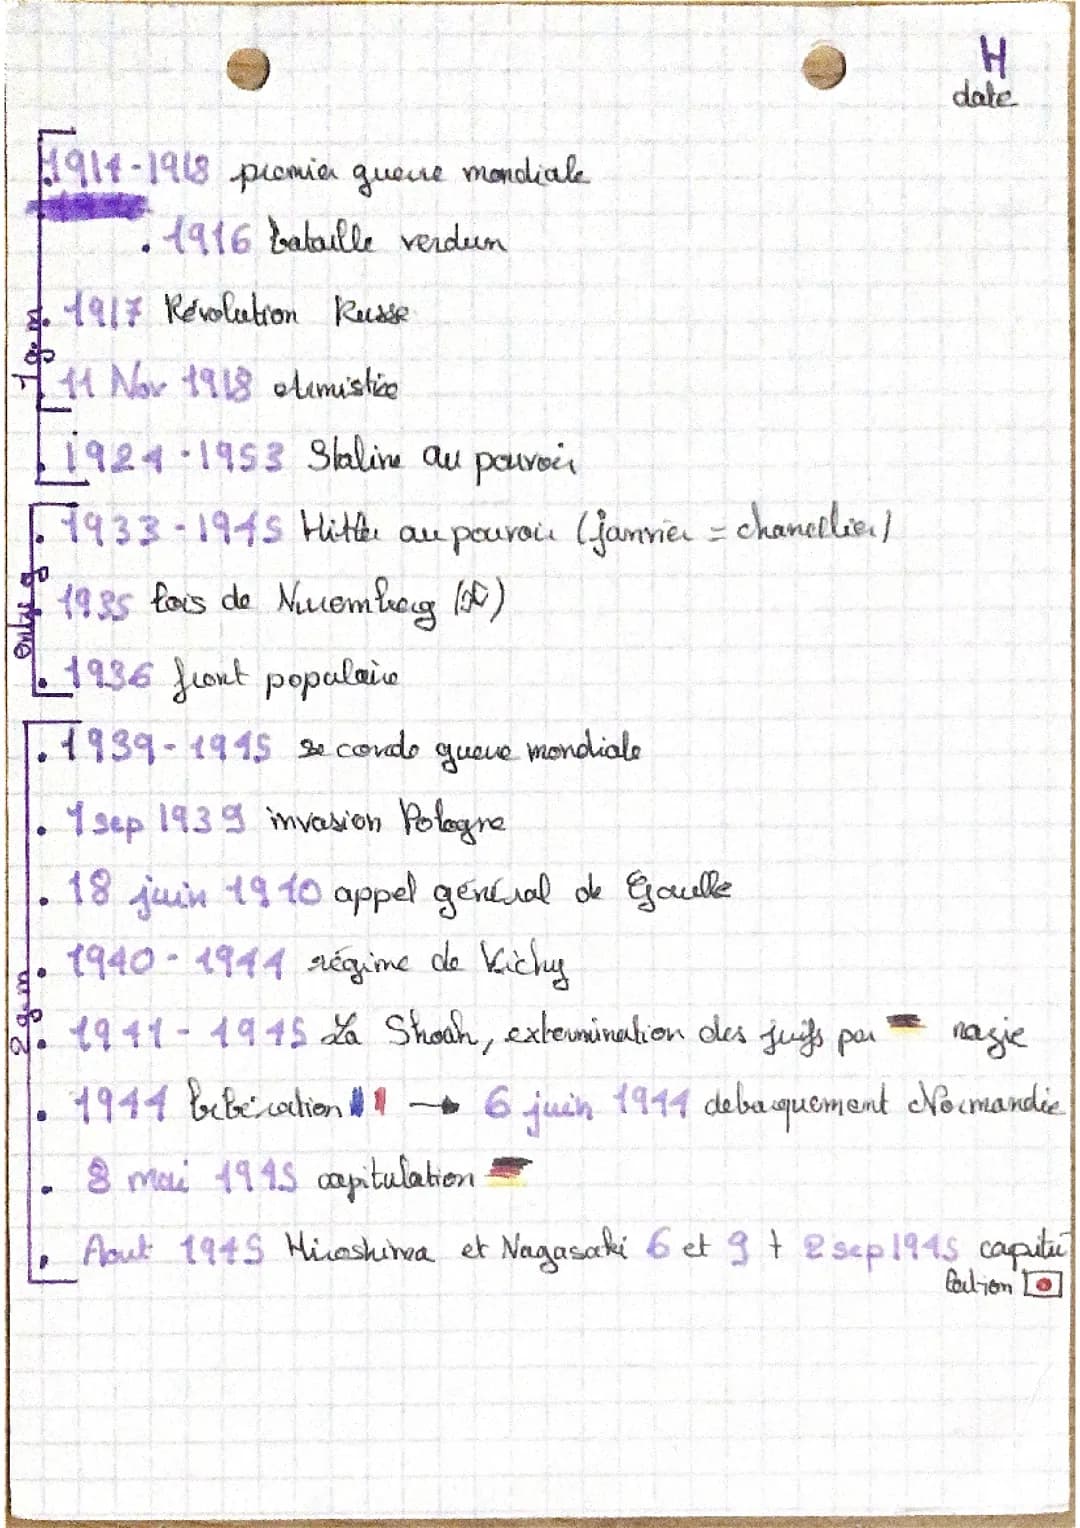 H
date
1914-1918 premier guerre mondiale
. 1916 bataille verdun
. 1917 Révolution Russe
1 g.m.
11 Nov 1918 armistice
. 1924-1953 Staline au pouvoir
. 1933-1945 Hitler au pouvoir (janvier = chancellier)
. 1935 lois de Nuremberg (✡)
entre g
. 1936 front populaire
. 1939-1945 seconde guerre mondiale
. 1 sep 1939 invasion Pologne
. 18 juin 1940 appel général de Gaulle
. 1940-1944 régime de Vichy
2 g.m
. 1941-1945 La Shoah, extermination des juifs par nazie
. 1944 libération → 6 juin 1944 debarquement Normandie
. 8 mai 1945 capitulation
. Aout 1945 Hiroshima et Nagasaki 6 et 9 + 2 sep 1945 capitu
lation